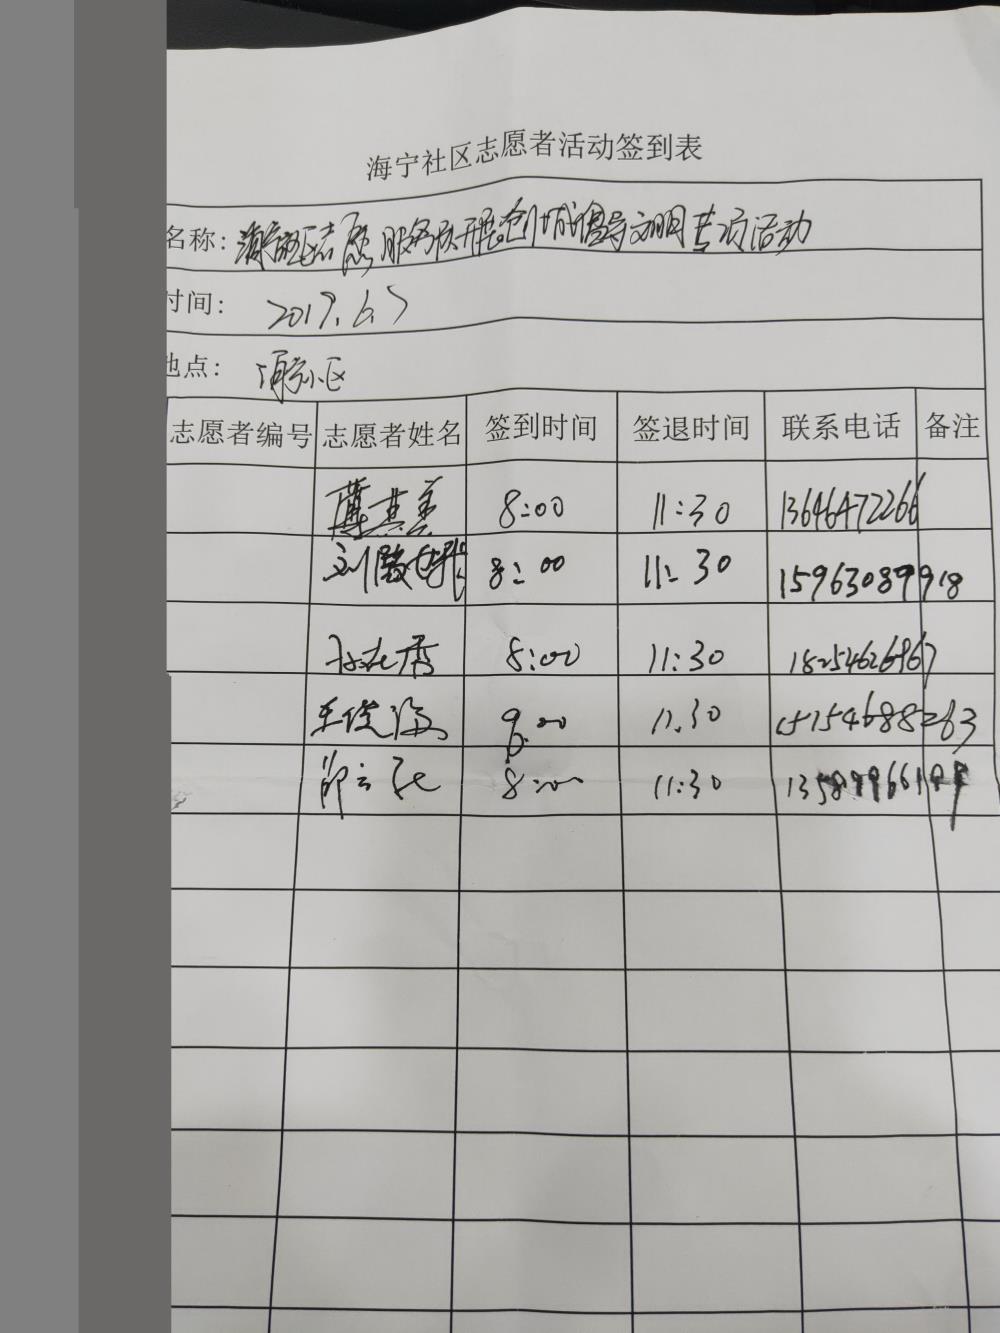 海宁社区志愿者活动签到表
名称: 海宁社区志愿服务队开展创城倡导文明专项活动
时间: 2019.6.5
地点: 海宁小区
志愿者编号 志愿者姓名 签到时间 签退时间 联系电话 备注
8:00 11:30 13646472266
8:00 11:30 15963089918
秀 8:00 11:30 18254626967
王俊海 8:00 11:30 15154688263
8:00 11:30